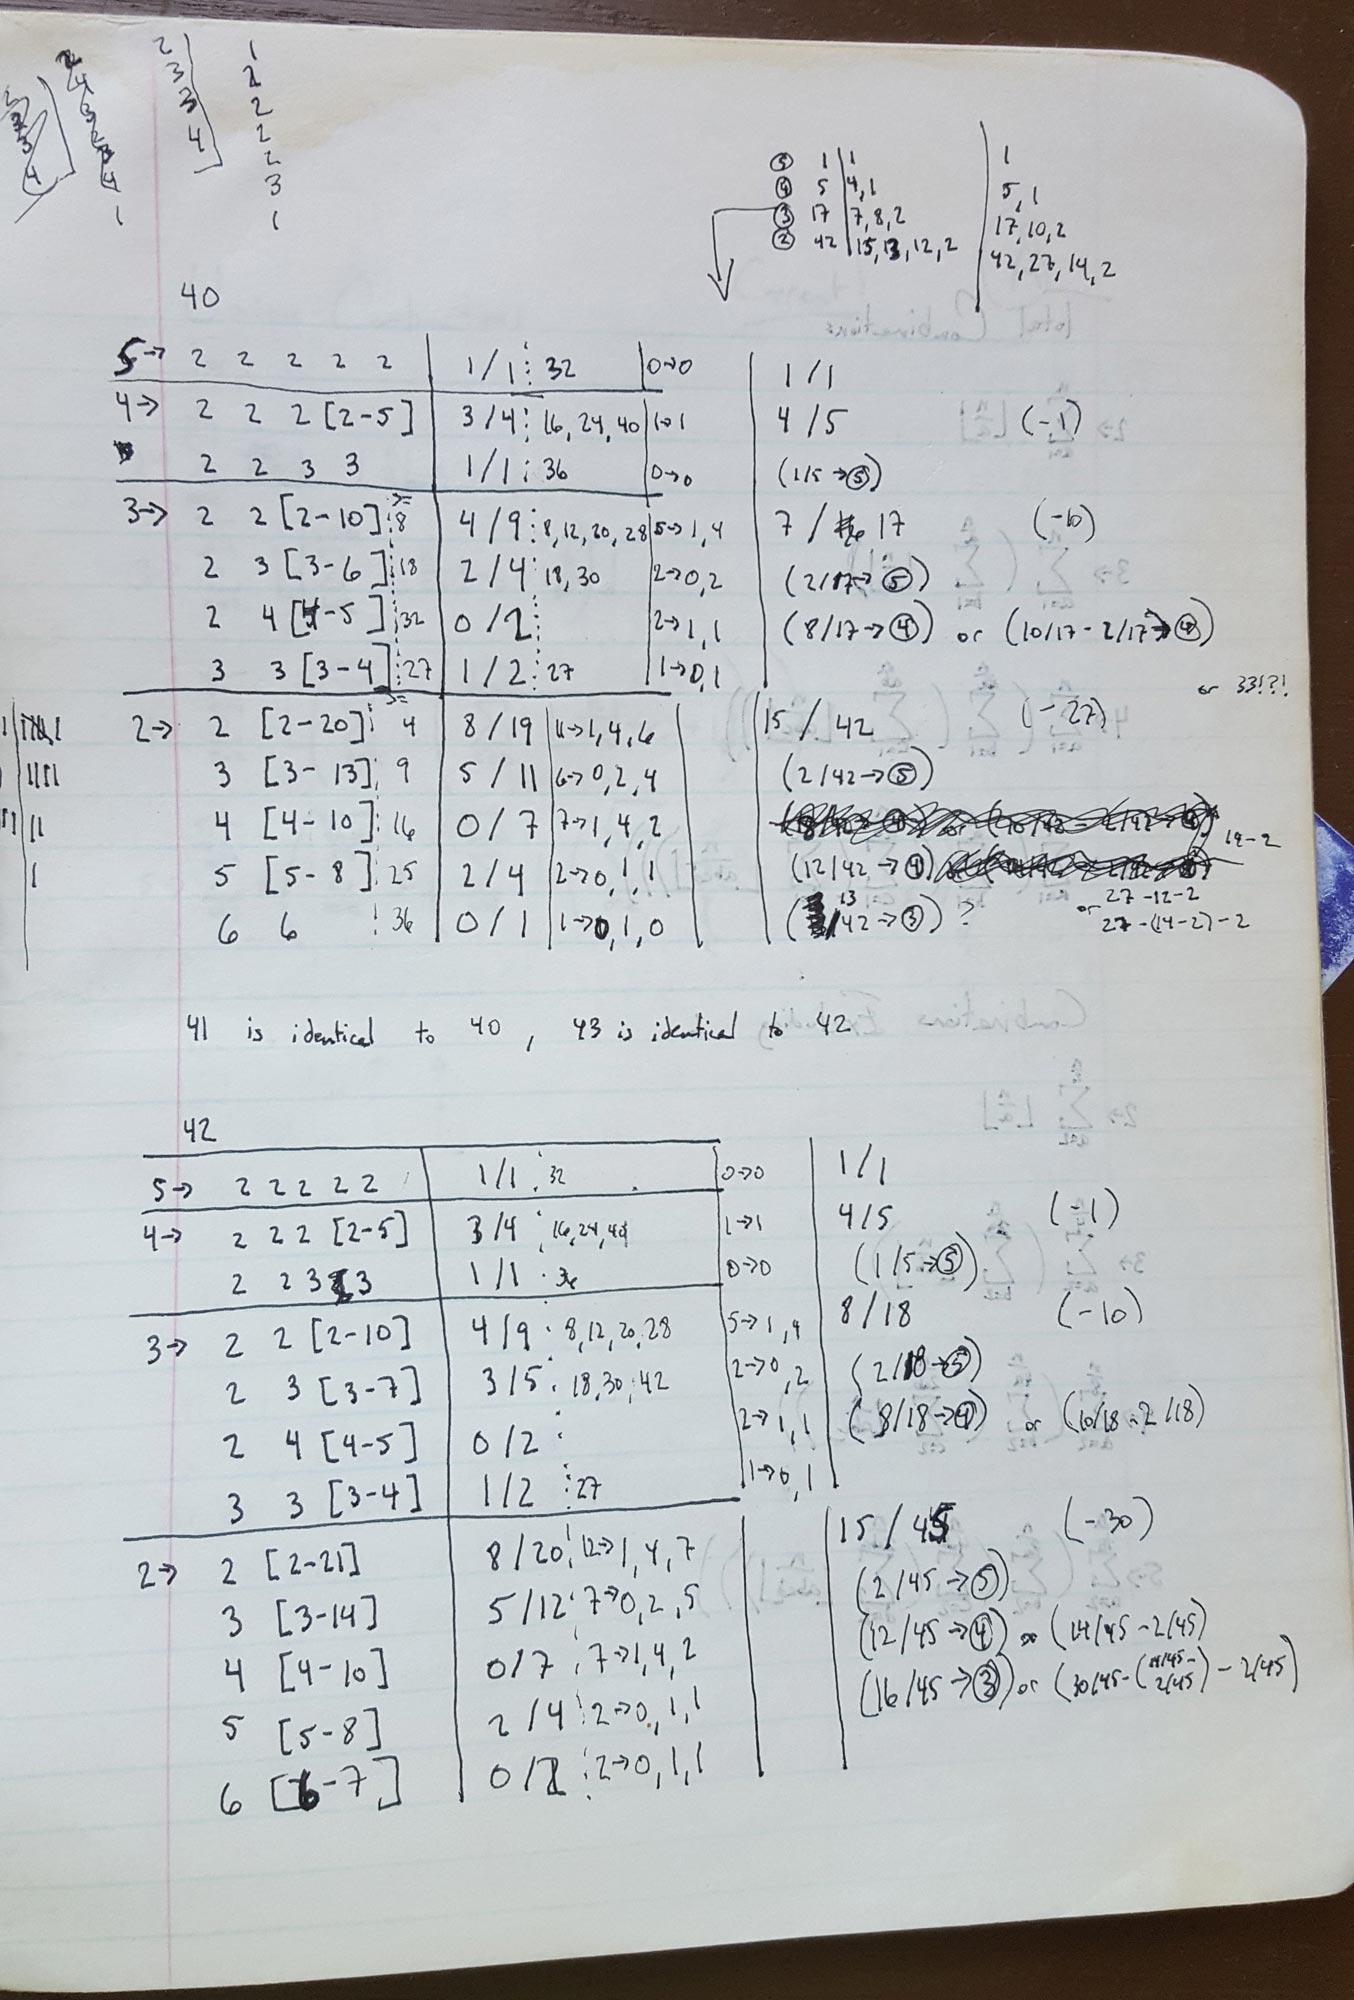 2 3 3 4
1 2 2 2 2 3 1
⑤ 1 | 1 | 1
④ 5 | 4,1 | 5,1
③ 17 | 7,8,2 | 17,10,2
② 42 | 15,13,12,2 | 42,27,14,2
40
5→ 2 2 2 2 2 | 1/1 ⋮ 32 | 0→0 | 1/1
4→ 2 2 2 [2-5] | 3/4 ⋮ 16,24,40 | 1→1 | 4/5 (-1)
2 2 3 3 | 1/1 ⋮ 36 | 0→0 | (1/5→⑤)
3→ 2 2 [2-10] ⋮ >= 8 | 4/9 ⋮ 8,12,20,28 | 5→1,4 | 7/17 (-10)
2 3 [3-6] ⋮ 18 | 2/4 ⋮ 18,30 | 2→0,2 | (2/17→⑤)
2 4 [4-5] ⋮ 32 | 0/2 ⋮ | 2→1,1 | (8/17→④) or (10/17-2/17→④)
3 3 [3-4] ⋮ 27 | 1/2 ⋮ 27 | 1→0,1
or 33!?!
2→ 2 [2-20] ⋮ >= 4 | 8/19 | 11→1,4,6 | 15/42 (-27)
3 [3-13] ⋮ 9 | 5/11 | 6→0,2,4 | (2/42→⑤)
4 [4-10] ⋮ 16 | 0/7 | 7→1,4,2
14-2
5 [5-8] ⋮ 25 | 2/4 | 2→0,1,1 | (12/42→④)
6 6 ⋮ 36 | 0/1 | 1→0,1,0 | (13/42→③)? or 27-12-2
27-(14-2)-2
41 is identical to 40, 43 is identical to 42
42
5→ 2 2 2 2 2 | 1/1 ⋮ 32 | 0→0 | 1/1
4→ 2 2 2 [2-5] | 3/4 ⋮ 16,24,40 | 1→1 | 4/5 (-1)
2 2 3 3 | 1/1 ⋮ 36 | 0→0 | (1/5→⑤)
3→ 2 2 [2-10] | 4/9 ⋮ 8,12,20,28 | 5→1,4 | 8/18 (-10)
2 3 [3-7] | 3/5 ⋮ 18,30,42 | 2→0,2 | (2/18→⑤)
2 4 [4-5] | 0/2 ⋮ | 2→1,1 | (8/18→④) or (10/18-2/18)
3 3 [3-4] | 1/2 ⋮ 27 | 1→0,1
2→ 2 [2-21] | 8/20 ⋮ 12→1,4,7 | 15/45 (-30)
3 [3-14] | 5/12 ⋮ 7→0,2,5 | (2/45→⑤)
4 [4-10] | 0/7 ⋮ 7→1,4,2 | (12/45→④) or (14/45-2/45)
5 [5-8] | 2/4 ⋮ 2→0,1,1 | (16/45→③) or (30/45-(14/45-2/45)-2/45)
6 [6-7] | 0/2 ⋮ 2→0,1,1